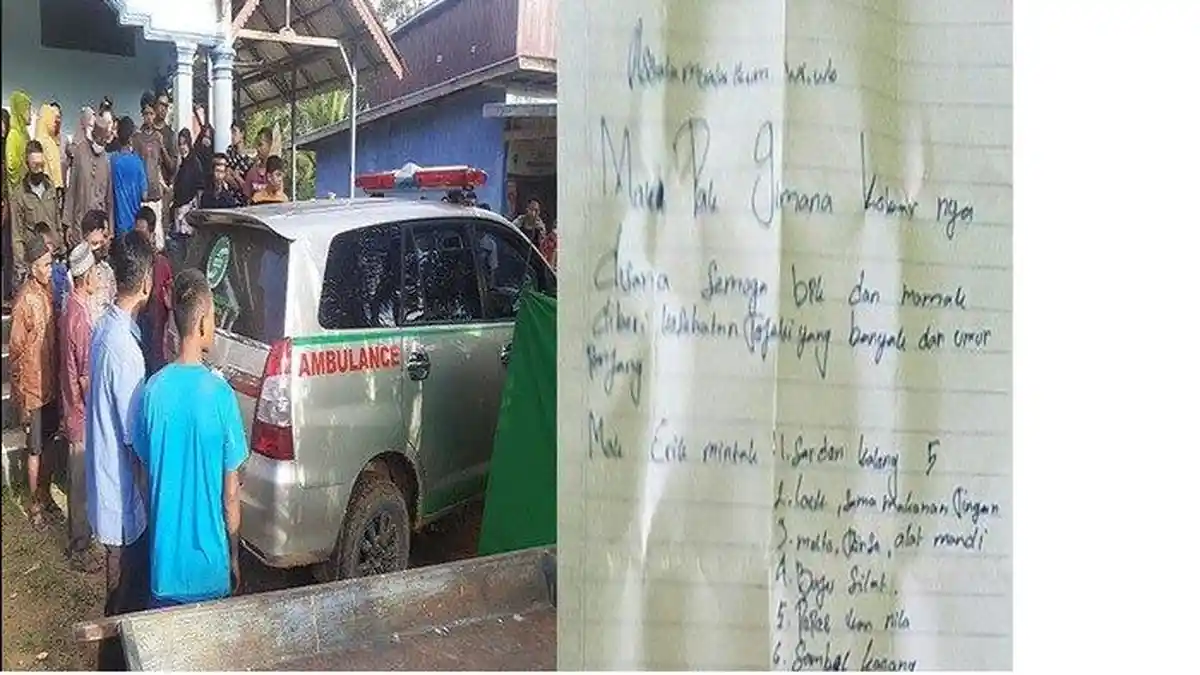 AMBULANCE
Assalamualaikum wr.wb
Mak Pak Gimana kabar nya
disana semoga bpk dan mamak
diberi kesehatan rojaki yang banyak dan umur
panjang
Mak Erik mintak 1. Sarden kaleng 5
2. lauk, sama makanan ringan
3. molto, rinso, alat mandi
4. Baju Silat.
5. Pepes ikan nila
6. Sambal kacang